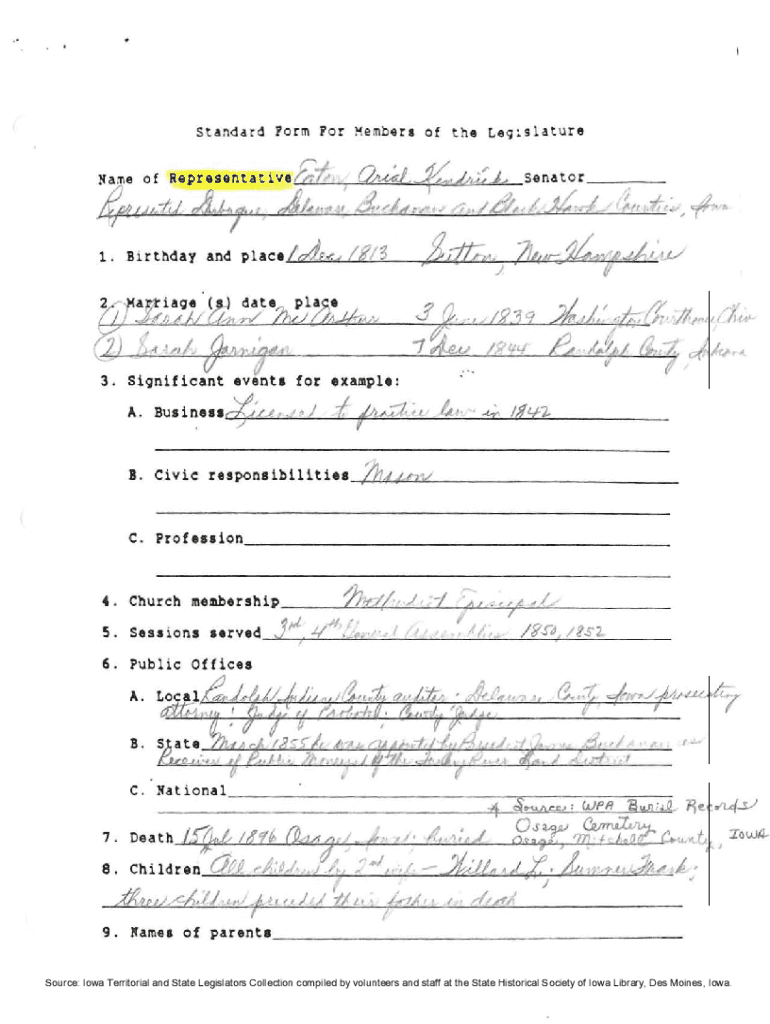 Standard Form For Members of the Legislature
Name of Representative Eaton, Arial Kendrick Senator
Represented Dubuque, Delaware, Buchanan and Black Hawk Counties, Iowa
1. Birthday and place 1 Dec. 1813 Sutton, New Hampshire
2. Marriage (s) date place
(1) Sarah Ann McArthur 3 June 1839 Washington Courthouse, Ohio
(2) Sarah Jarnigan 7 Dec 1845 Randolph County, Indiana
3. Significant events for example:
A. Business Licensed to practice law in 1842
B. Civic responsibilities Mason
C. Profession
4. Church membership Methodist Episcopal
5. Sessions served 3rd, 4th General Assemblies 1850, 1852
6. Public Offices
A. Local Randolph Indiana County auditor; Delaware County, Iowa prosecuting
attorney; Judge of Probate; County Judge
B. State March 1855 he was appointed by President James Buchanan as
Receiver of Public Moneys of the Turkey River Land District
C. National
* Source: WPA Burial Records
Osage Cemetery
7. Death 15 Jul 1896 Osage, Iowa; buried Osage, Mitchell County, Iowa
8. Children All children by 2nd wife - Willard L.; Sumner; Frank;
three children preceded their father in death
9. Names of parents
Source: Iowa Territorial and State Legislators Collection compiled by volunteers and staff at the State Historical Society of Iowa Library, Des Moines, Iowa.